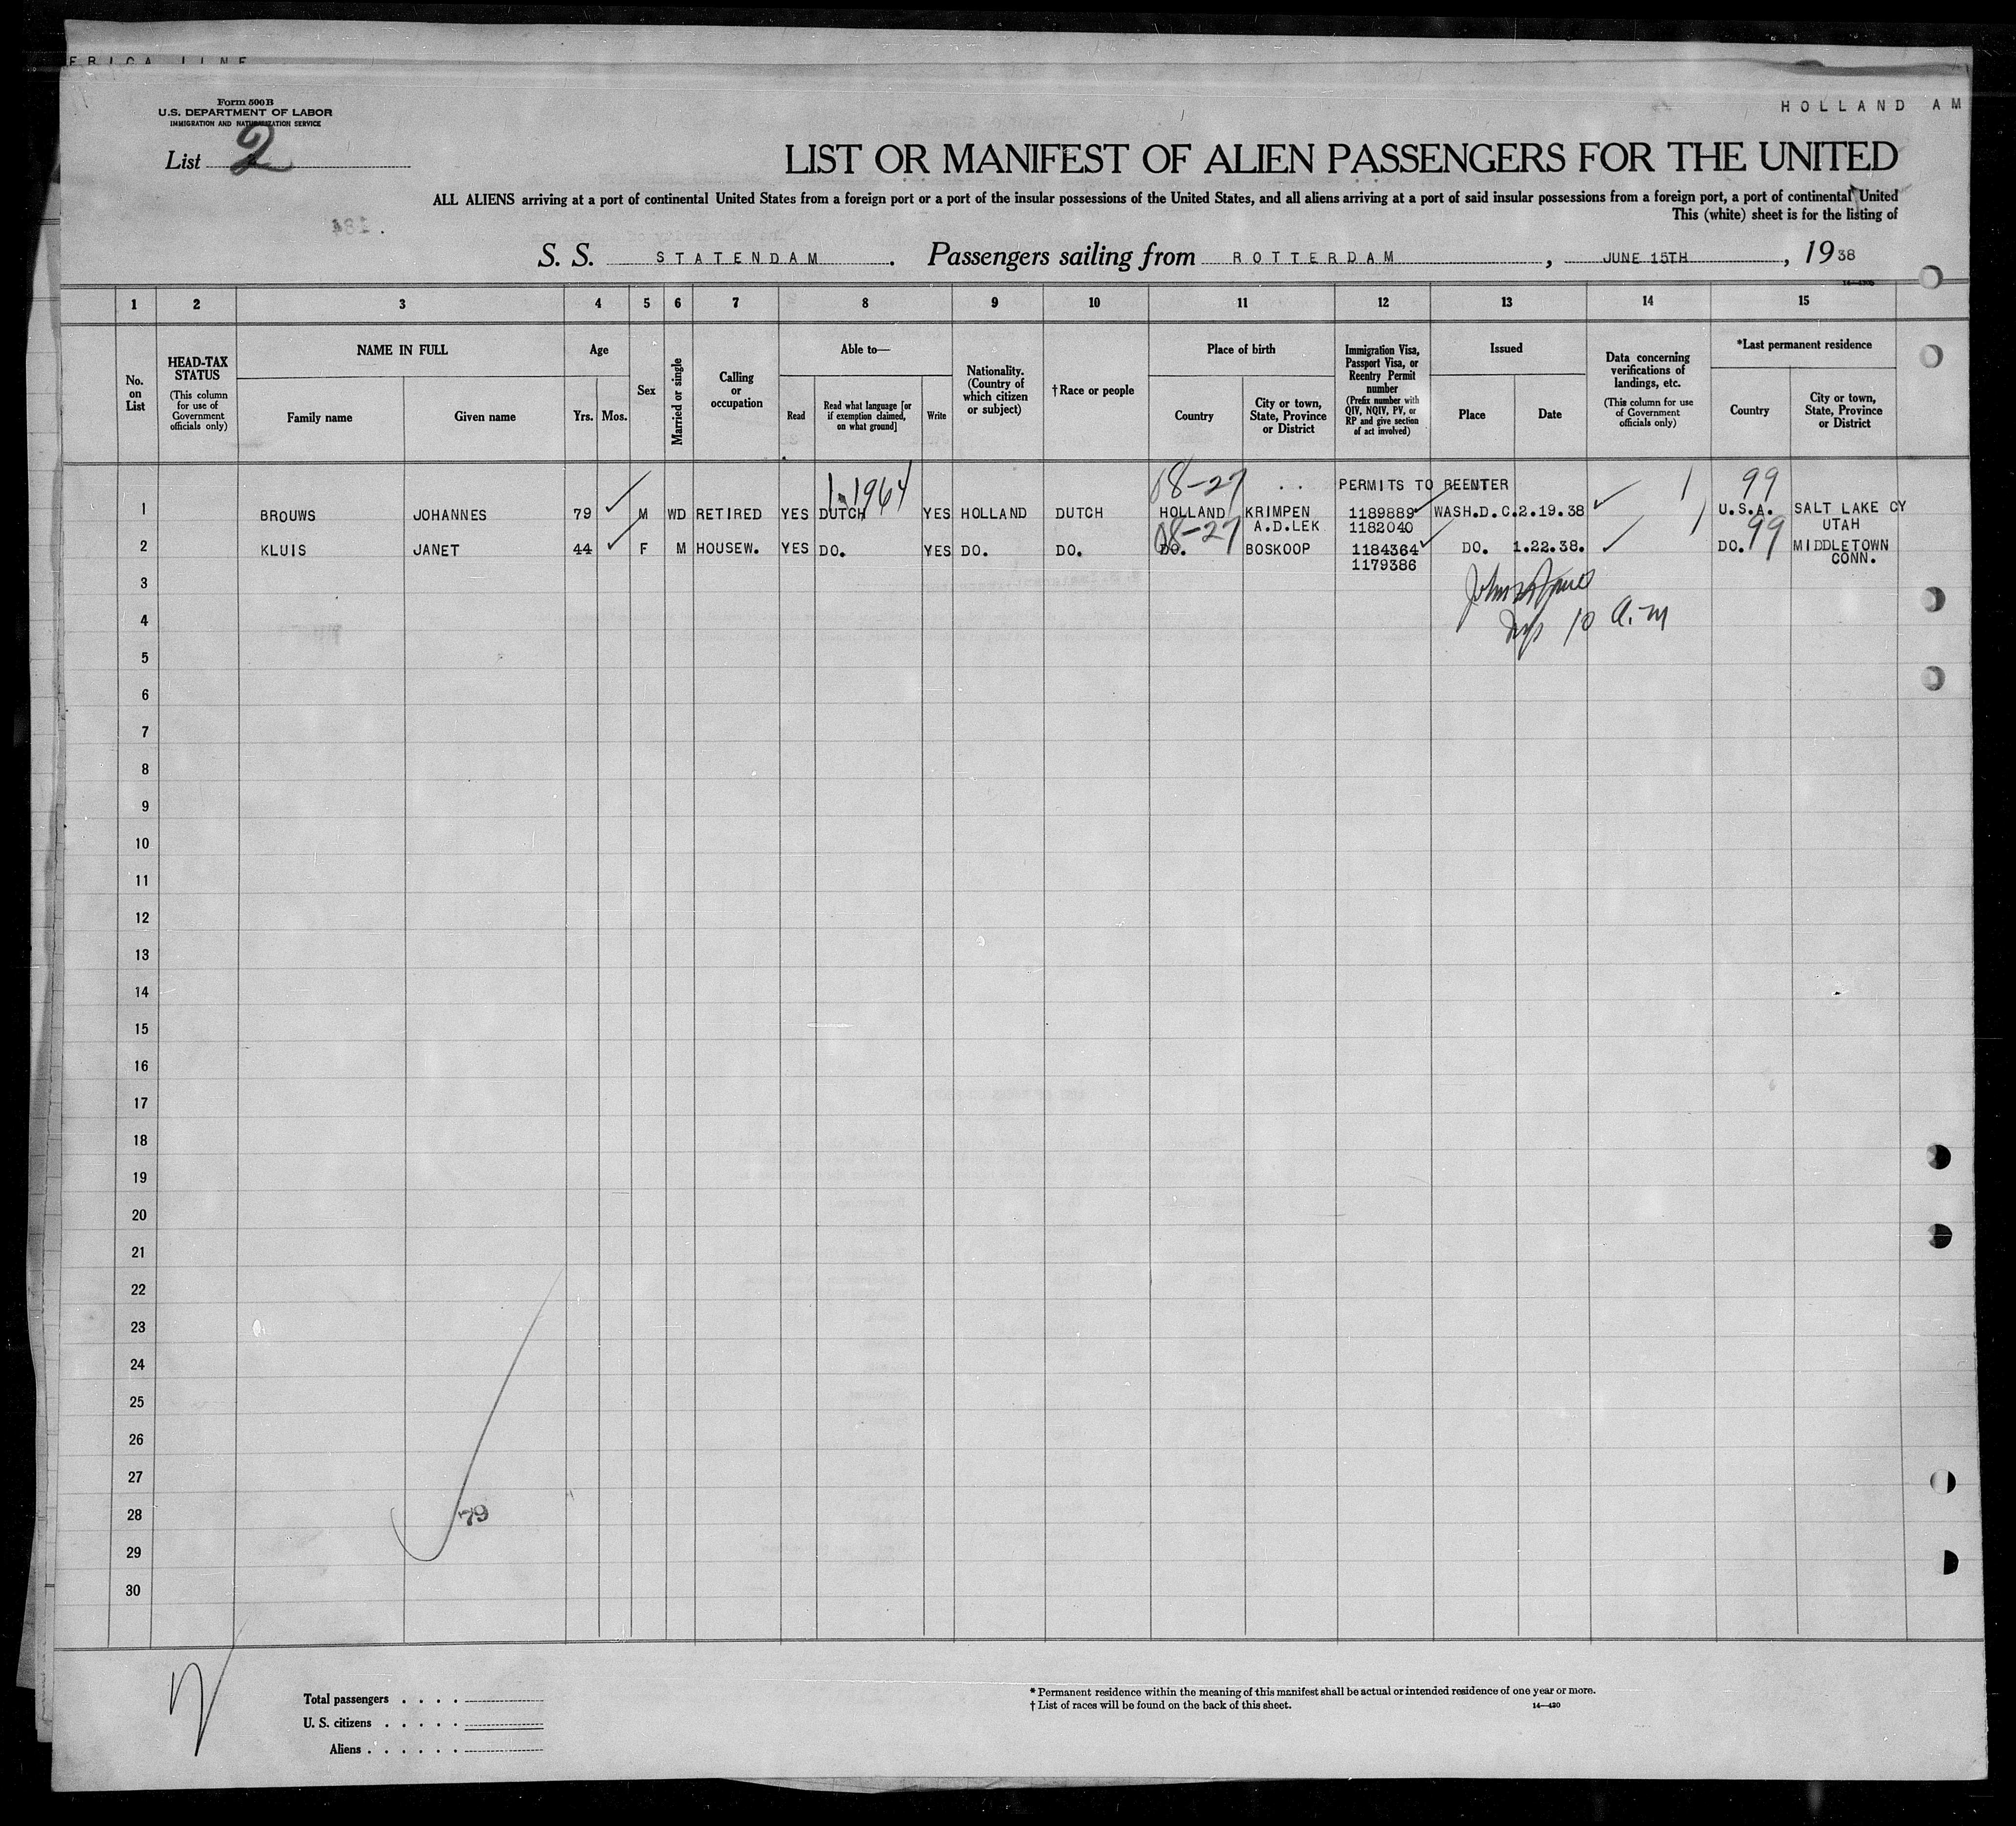 ERICA LINE
HOLLAND AM
Form 500B
U.S. DEPARTMENT OF LABOR
IMMIGRATION AND NATURALIZATION SERVICE
List 2
LIST OR MANIFEST OF ALIEN PASSENGERS FOR THE UNITED
ALL ALIENS arriving at a port of continental United States from a foreign port or a port of the insular possessions of the United States, and all aliens arriving at a port of said insular possessions from a foreign port, a port of continental United
This (white) sheet is for the listing of
184
S. S. STATENDAM. Passengers sailing from ROTTERDAM, JUNE 15TH, 1938
1 2 3 4 5 6 7 8 9 10 11 12 13 14 15
No. on List
HEAD-TAX STATUS (This column for use of Government officials only)
NAME IN FULL
Family name Given name
Age
Yrs. Mos.
Sex
Married or single
Calling or occupation
Able to—
Read Read what language [or if exemption claimed, on what ground] Write
Nationality. (Country of which citizen or subject)
†Race or people
Place of birth
Country City or town, State, Province or District
Immigration Visa, Passport Visa, or Reentry Permit number (Prefix number with QIV, NQIV, PV, or RP and give section of act involved)
Issued
Place Date
Data concerning verifications of landings, etc. (This column for use of Government officials only)
*Last permanent residence
Country City or town, State, Province or District
1-1964 08-27 PERMITS TO REENTER 1 99
1 BROUWS JOHANNES 79 M WD RETIRED YES DUTCH YES HOLLAND DUTCH HOLLAND KRIMPEN 1189889 WASH.D.C. 2.19.38 U.S.A. SALT LAKE CY
A.D.LEK 1182040 UTAH
08-27 1 99
2 KLUIS JANET 44 F M HOUSEW. YES DO. YES DO. DO. DO. BOSKOOP 1184364 DO. 1.22.38. DO. MIDDLETOWN
1179386 CONN.
3
4
10 a.m
5
6
7
8
9
10
11
12
13
14
15
16
17
18
19
20
21
22
23
24
25
26
27
28 79
29
30
Total passengers . . . .
U. S. citizens . . . . .
Aliens . . . . . .
* Permanent residence within the meaning of this manifest shall be actual or intended residence of one year or more.
† List of races will be found on the back of this sheet. 14—430